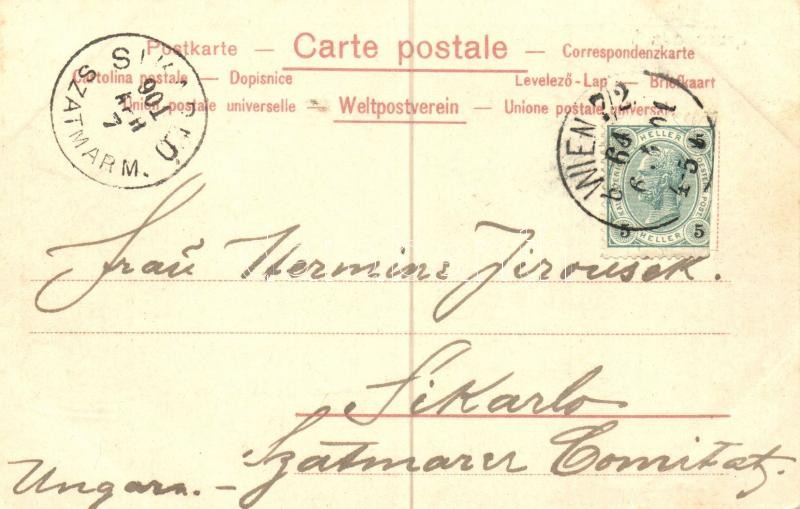 Postkarte — Carte postale — Correspondenzkarte
Cartolina postale — Dopisnice Levelező-Lap — Briefkaart
Union postale universelle — Weltpostverein — Unione postale universale
SZATMARM.
WIEN 7/2
6
5 HELLER 5
5 HELLER 5
Frau Hermine Jirousek.
Sikarlo
Szatmarer Comitat,
Ungarn. —